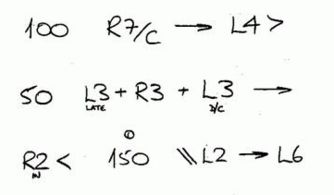 100 R7/C → L4>
50 L3 + R3 + L3 →
LATE 2/C
R2< 150 \\L2 → L6
IN